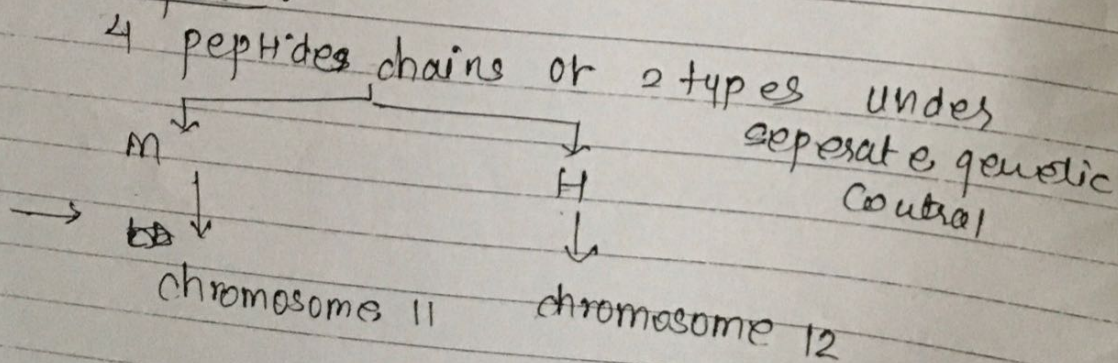 4 peptides chains or 2 types under
seperate genetic
control
M
H
chromosome 11
chromosome 12